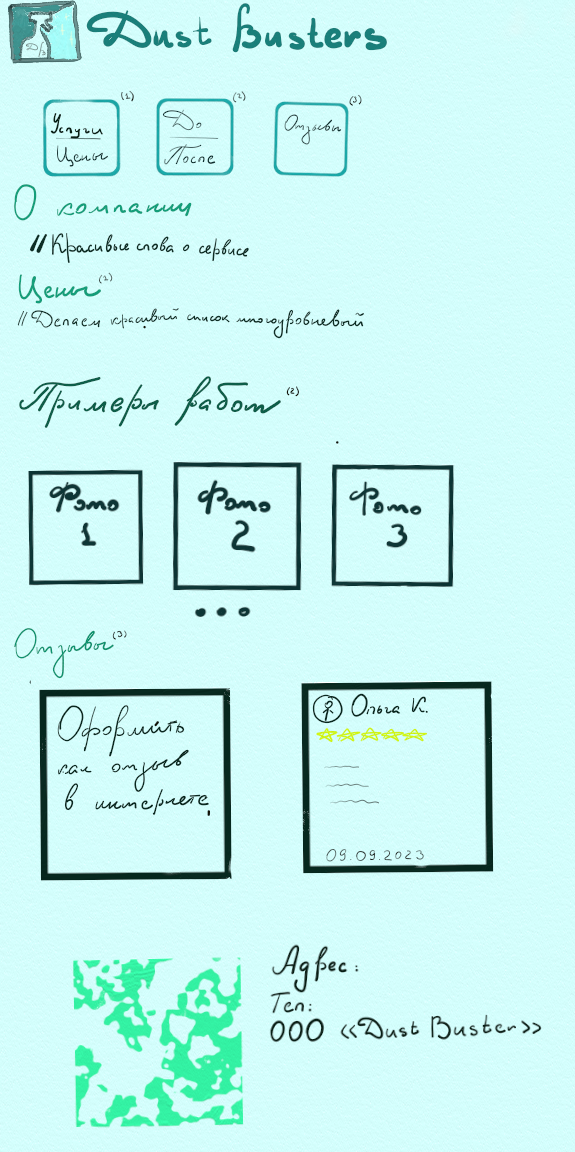 Dust Busters
(1)
(2)
(3)
Услуги
Цены
До
После
Отзывы
О компании
// Красивые слова о сервисе
Цены (1)
// Делаем красивый список многоуровневый
Примеры работ (2)
Фото
1
Фото
2
Фото
3
Отзывы (3)
Оформить
как отзыв
в интернете
Ольга К.
09.09.2023
Адрес:
Тел:
ООО «Dust Buster»